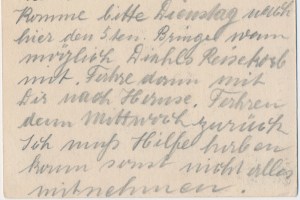 Komme bitte Dienstag nach
hier den 5ten. Bringe wenn
möglich Reisekorb
mit. Fahre dann mit
Dir nach Hause. Fahren
denn Mittwoch zurück
Ich muß Hilfe haben
kann sonst nicht alles
mitnehmen.